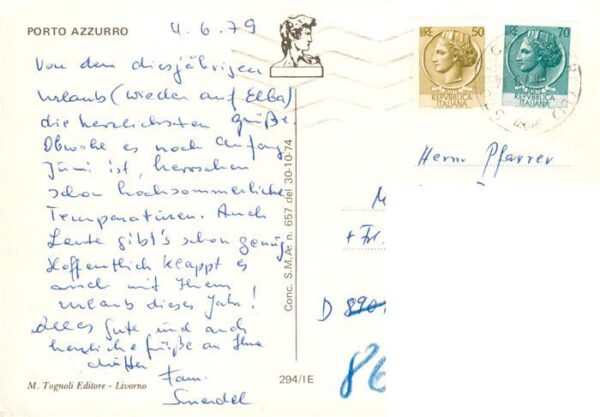 PORTO AZZURRO
4.6.79
Von dem diesjährigen
Urlaub (wieder auf Elba)
die herzlichsten Grüße.
Obwohl es noch Anfang
Juni ist, herrschen
schon hochsommerliche
Temperaturen. Auch
Leute gibt's schon genug.
Hoffentlich klappt es
auch mit Ihrem
Urlaub dieses Jahr!
Alles Gute und auch
herzliche Grüße an Ihre
Mutter
Fam.
M. Tognoli Editore - Livorno
Conc. S.M.A. n. 657 del 30-10-74
294/IE
LIRE 50
REPVBBLICA
ITALIANA
LIRE 70
REPVBBLICA
ITALIANA
Herrn Pfarrer
M
+ Fr.
D 890
86